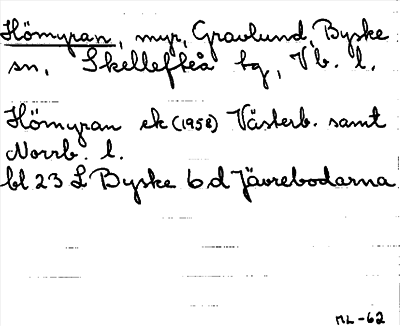 Hömyran, myr, Gravlund, Byske
sn, Skellefteå tg, Vb. l.
Hömyran ek (1958) Västerb. samt
Norrb. l.
bl 23 L Byske 6 d Jävrebodarna
ML-62